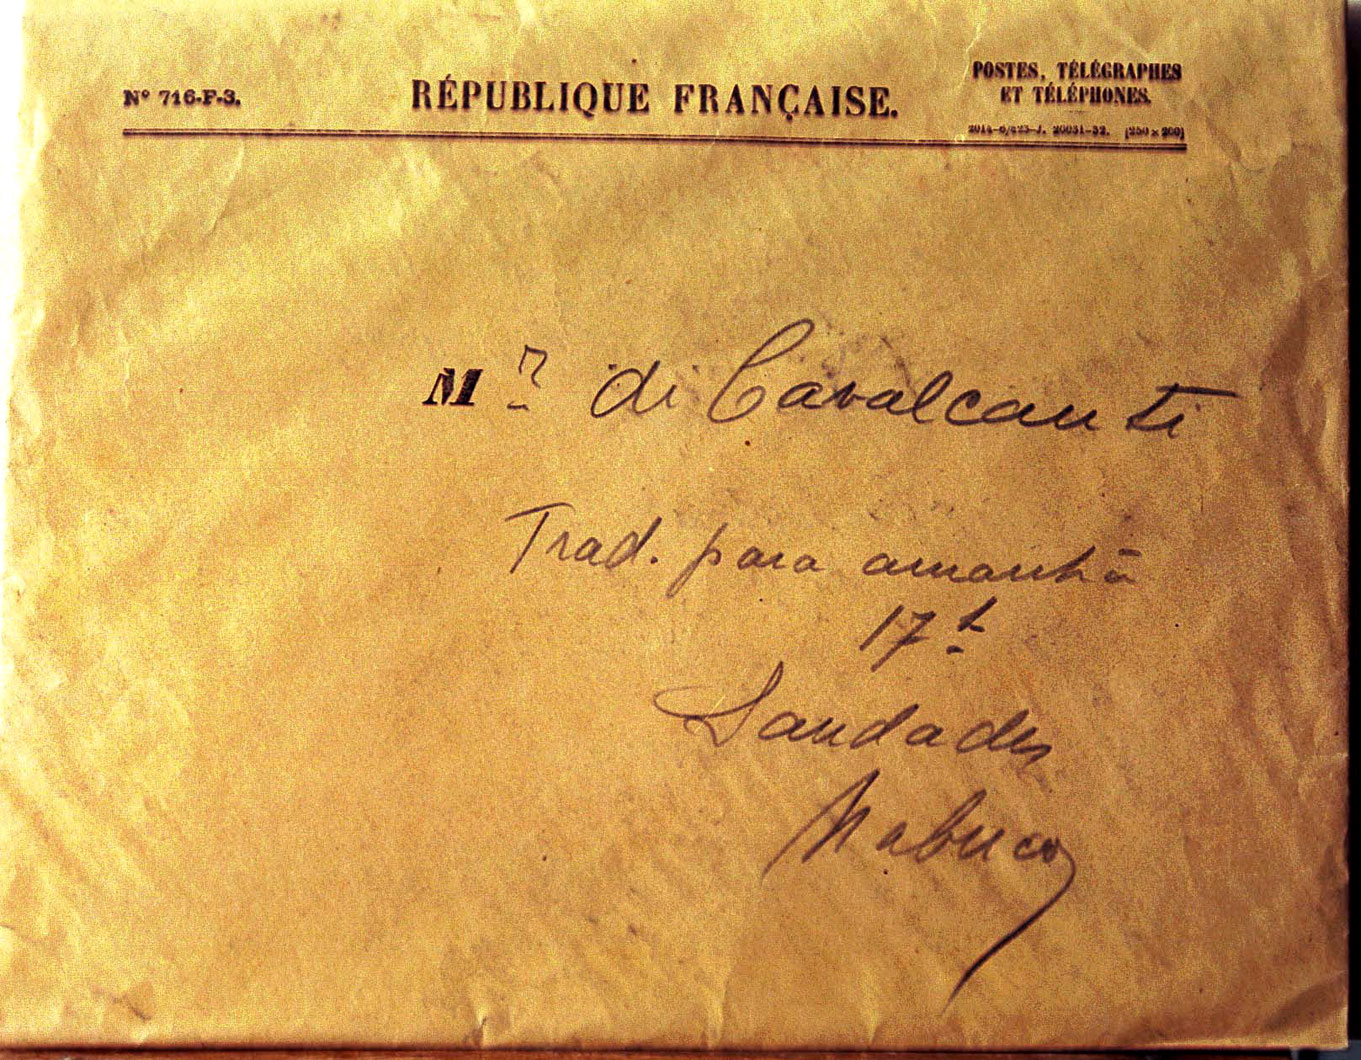 Nº 716-F-3.
RÉPUBLIQUE FRANÇAISE.
POSTES, TÉLÉGRAPHES
ET TÉLÉPHONES.
20051-32. [250 × 200]
Mr di Cavalcanti
Trad. para amanhã
17t
Saudades
Nabuco